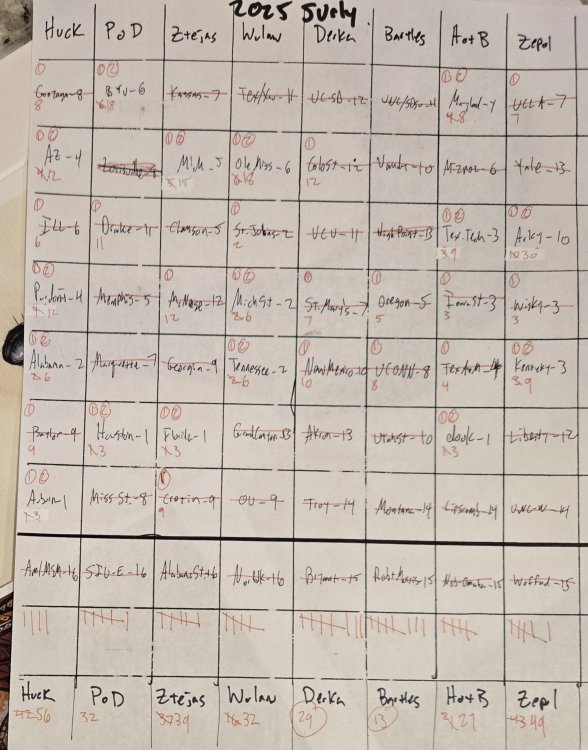 2025 Surly
Huck PoD Ztejas Wulaw Derka Bartles HotB Zepol
① ①② ①② ①
Gonzaga-8 BYU-6 Kansas-7 Tex/Xav-11 UC-SD-12 UNC/SDSU-11 Maryland-4 UCLA-7
8 6 18 4 8 7
①② ①② ①② ①
AZ-4 Louisville-8 Mich-5 Ole Miss-6 Colost-12 Vandy-10 Mizzou-6 Yale-13
4 12 5 15 6 18 12
① ① ① ①② ①②
ILL-6 Drake-11 Clemson-5 St.Johns-2 VCU-11 High Point-13 Tex.Tech-3 Arky-10
6 11 2 3 9 10 30
①② ① ①② ① ① ① ①
Purdont-4 Memphis-5 McNeese-12 MichSt-2 St.Mary's-7 Oregon-5 IowaSt-3 Wisky-3
4 12 12 2 6 7 5 3 3
①② ①② ① ① ① ①②
Alabama-2 Marquette-7 Georgia-9 Tennessee-2 New Mexico-10 UCONN-8 TexA+M-4 Kentucky-3
2 6 2 6 10 8 4 3 9
① ①② ①② ①②
Baylor-9 Houston-1 Florida-1 Grand Canyon-13 Akron-13 Utahst-10 dook-1 Liberty-12
9 3 3 3
①② ①
Auburn-1 Miss St.-8 Creatin-9 OU-9 Troy-14 Montana-14 Lipscomb-14 UNC-W-14
3 9
Am/MSM-16 SIU-E-16 AlabamaSt-16 Nor UK-16 Bryant-15 RobtMorris-15 Neb-Omaha-15 Wofford-15
Huck PoD Ztejas Wulaw Derka Bartles HotB Zepol
56 32 39 32 29 13 27 49